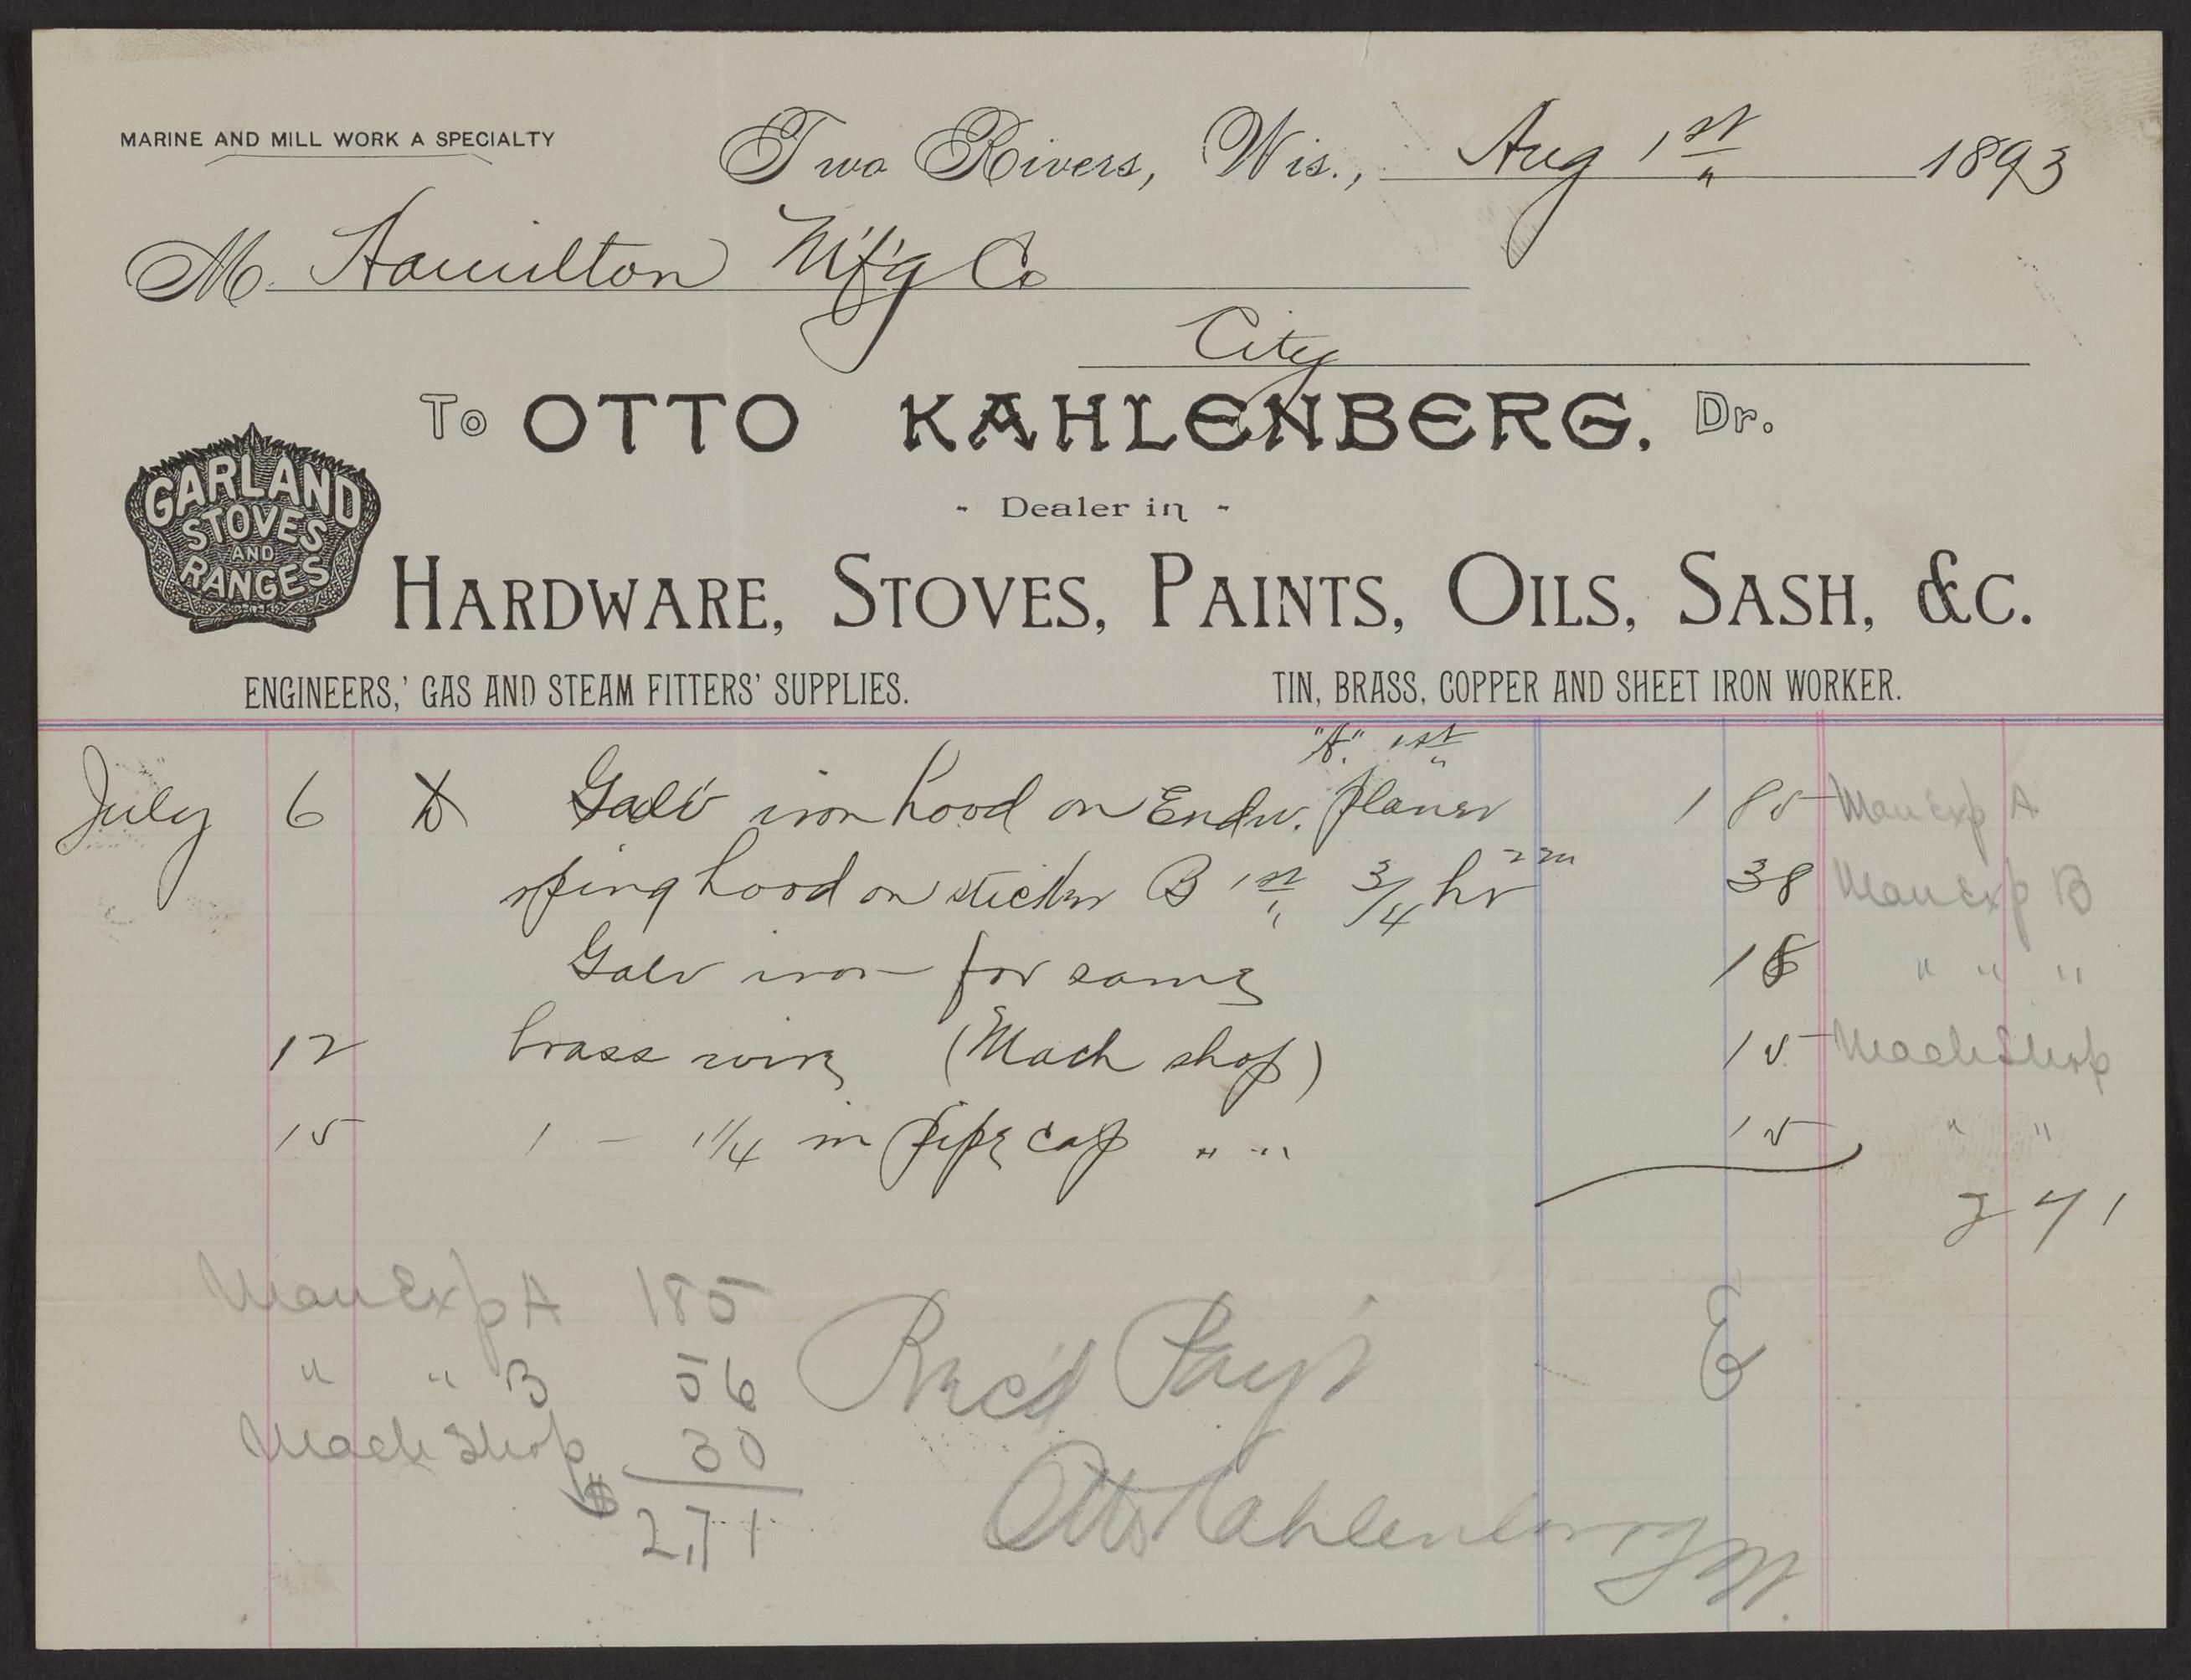 MARINE AND MILL WORK A SPECIALTY
Two Rivers, Wis., Aug 1st 1893
M. Hamilton M'f'g Co
City
To OTTO KAHLENBERG, Dr.
GARLAND
STOVES
AND
RANGES
- Dealer in -
HARDWARE, STOVES, PAINTS, OILS, SASH, &C.
ENGINEERS,' GAS AND STEAM FITTERS' SUPPLIES.
TIN, BRASS, COPPER AND SHEET IRON WORKER.
"A" 1st
July 6 Galv iron hood on Endw. planer 1 85 Man Exp A
rping hood on sticker B 1st 3/4 hr 38 Man Exp B
Galv iron for same 18 " " "
12 brass wire (Mach shop) 15 Mach Shop
15 1 - 1 1/4 in pipe cap " " 15 " "
2 71
Man Exp A 185
" " B 56
Mach Shop 30
$ 2,71
Rec'd Pay't
Otto Kahlenberg